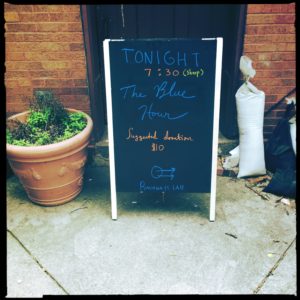 TONIGHT
7:30 (Sharp)
The Blue
Hour
Suggested donation
$10